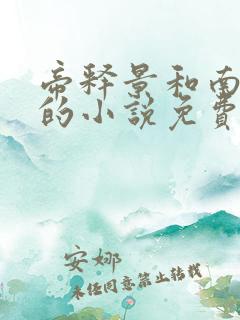 帝释景和南
的小说免费
安娜
未经同意禁止转载